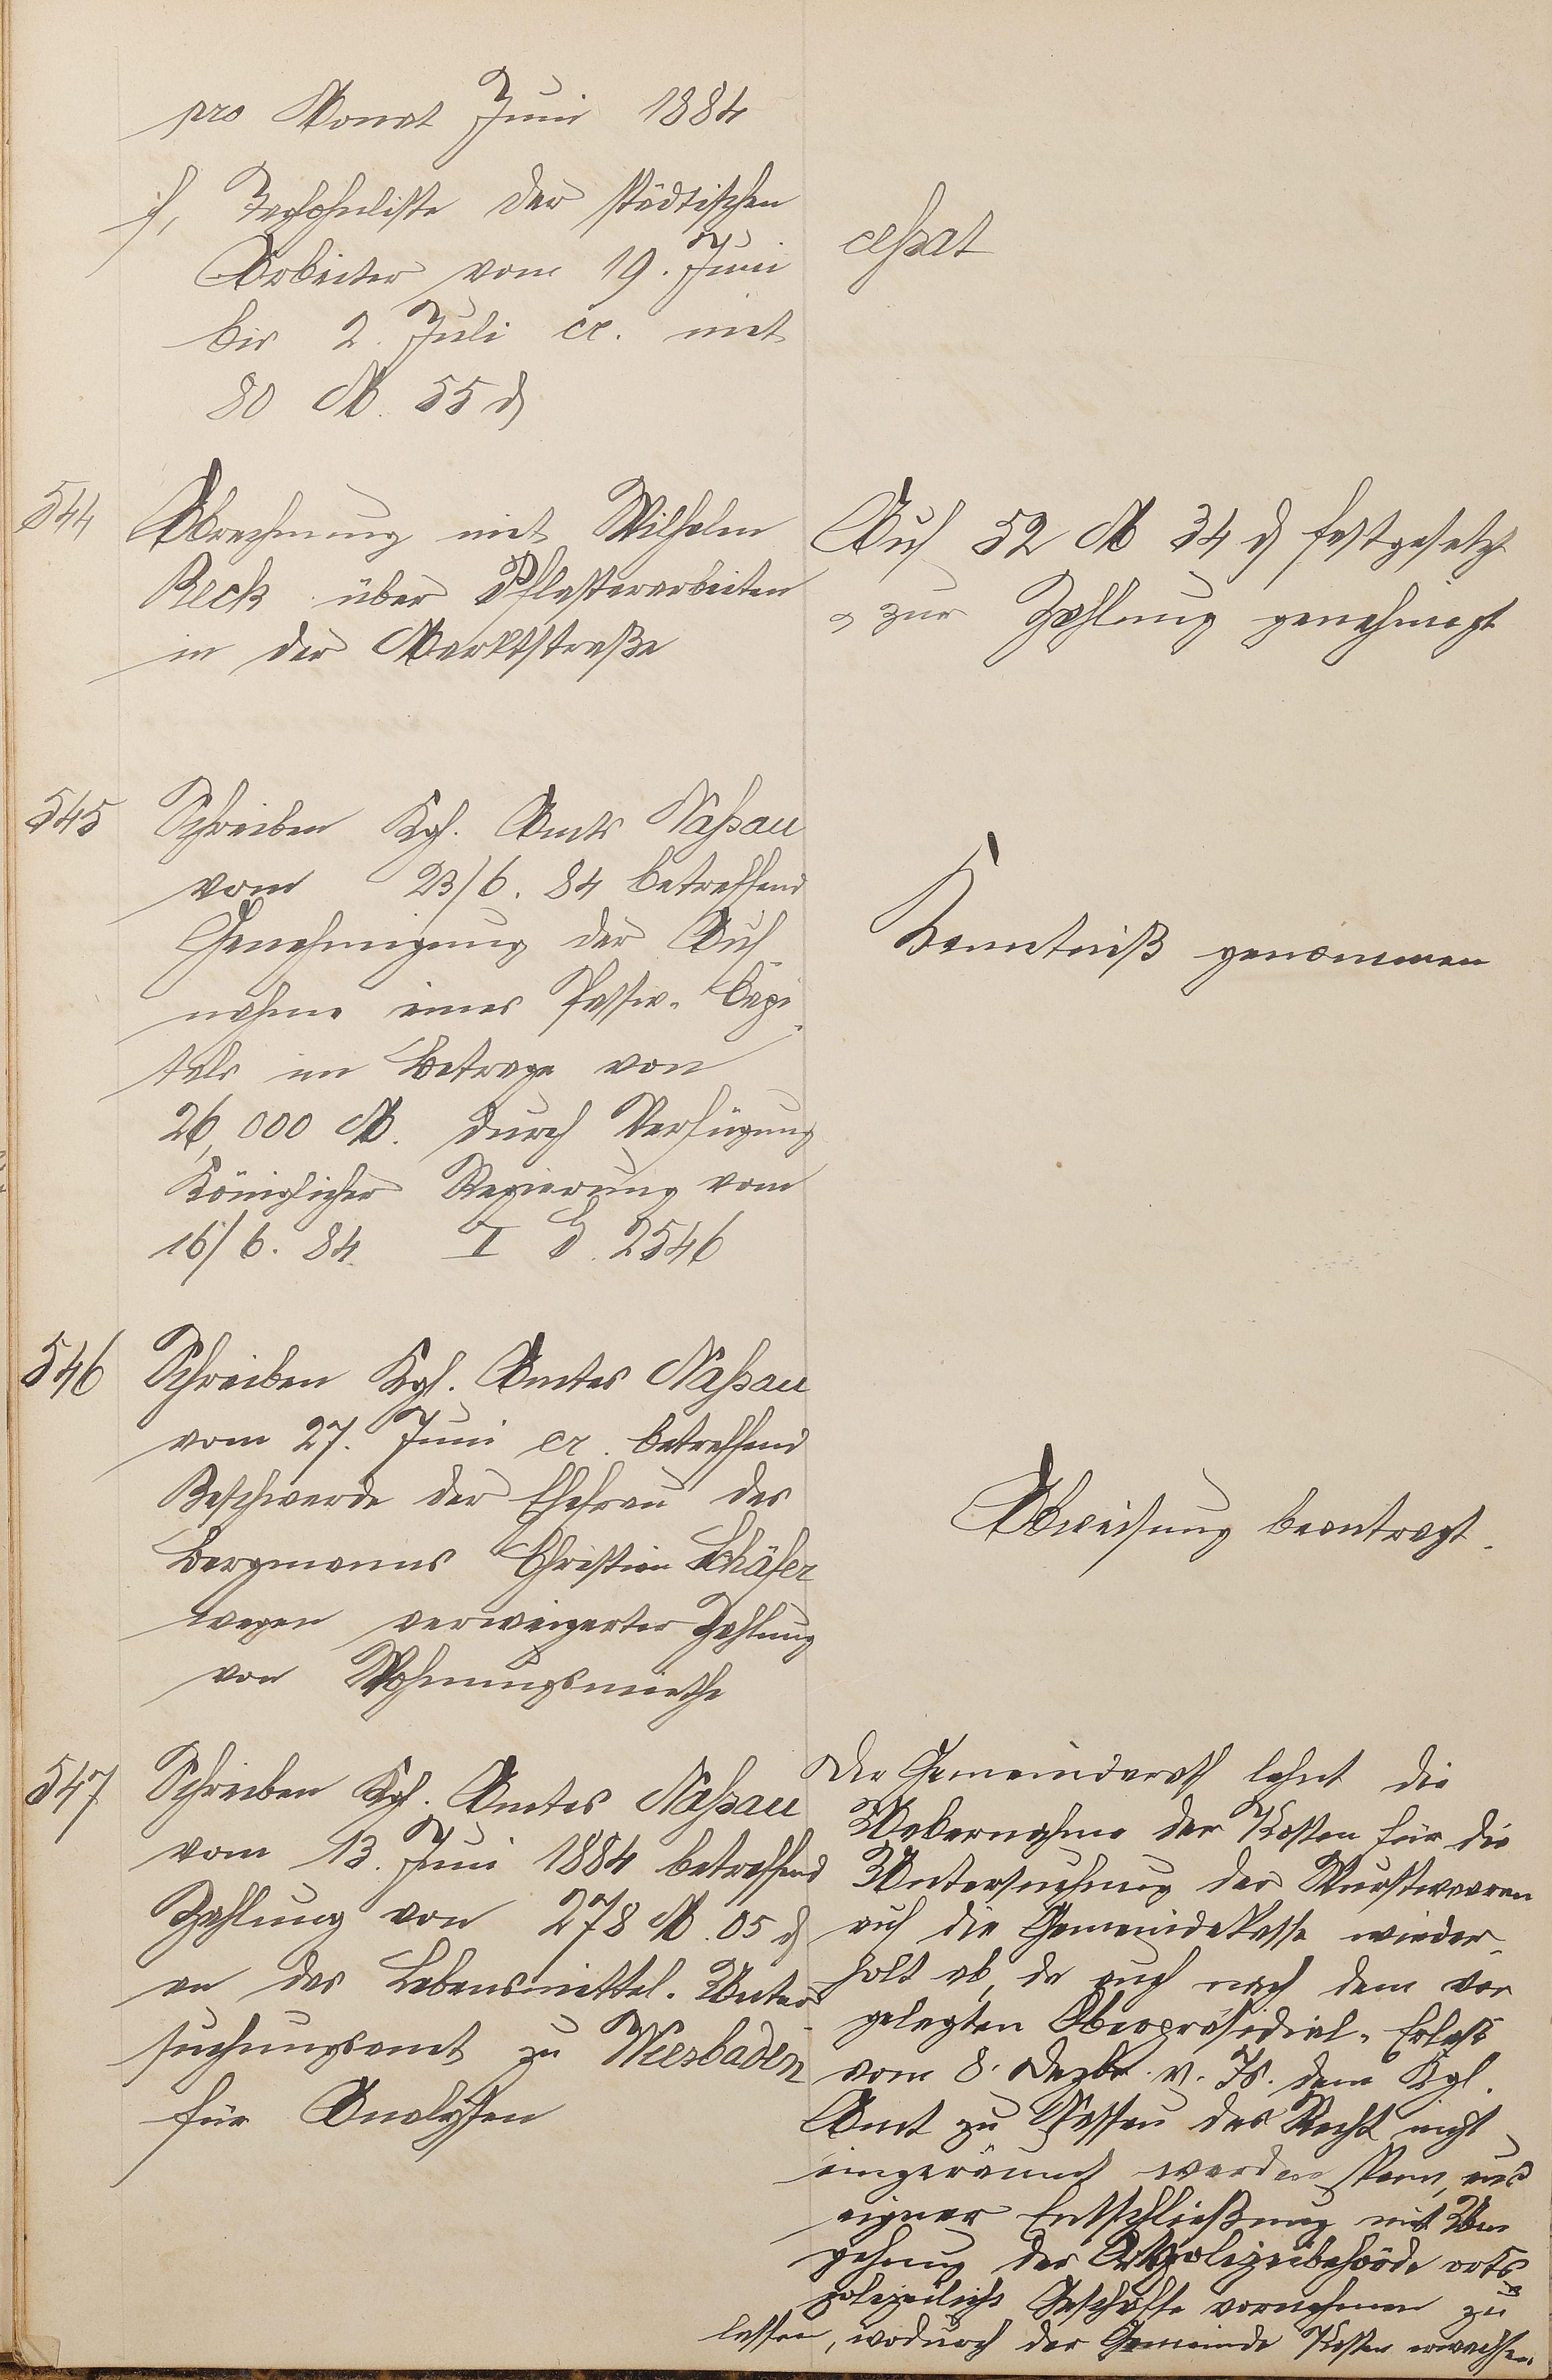 pro Monat Juni 1884
f, Taglohnliste der städtischen
Arbeiter vom 19. Juni
bis 2. Juli cr. mit
80 M. 55 d
cessat
544
Abrechnung mit Wilhelm
Beck über Pflasterarbeiten
in der Marktstraße
Auf 52 M 34 d festgesetzt
& zur Zahlung genehmigt
545
Schreiben Kgl. Amts Nassau
vom 23/6. 84 betreffend
Genehmigung der Auf-
nahme eines Passiv-Capi-
tals im Betrage von
26,000 M. durch Verfügung
Königlicher Regierung vom
16/6. 84 I 2546
Kenntniß genommen
546
Schreiben Kgl. Amtes Nassau
vom 27. Juni cr. betreffend
Beschwerde der Ehefrau des
Bergmanns Christian Schäfer
wegen verweigerter Zahlung
von Wohnungsmiethe
Abweisung beantragt.
547
Schreiben Kgl. Amtes Nassau
vom 13. Juni 1884 betreffend
Zahlung von 278 M. 05 d
an das Lebensmittel-Unter-
suchungsamt zu Wiesbaden
für Analysen
Der Gemeinderath lehnt die
Uebernahme der Kosten für die
Untersuchung der Wurstwaaren
auf die Gemeindekasse wieder-
holt ab, da auch nach dem vor
gelegten Oberpräsidial-Erlaß
vom 8. Dezbr. v. Js. dem Kgl.
Amt zu Nassau das Recht nicht
eingeräumt werden kann, aus
eigner Entschließung mit Um
gehung der Ortspolizeibehörde orts-
polizeiliche Geschäfte vornehmen zu
lassen, wodurch der Gemeinde Kosten erwachsen.